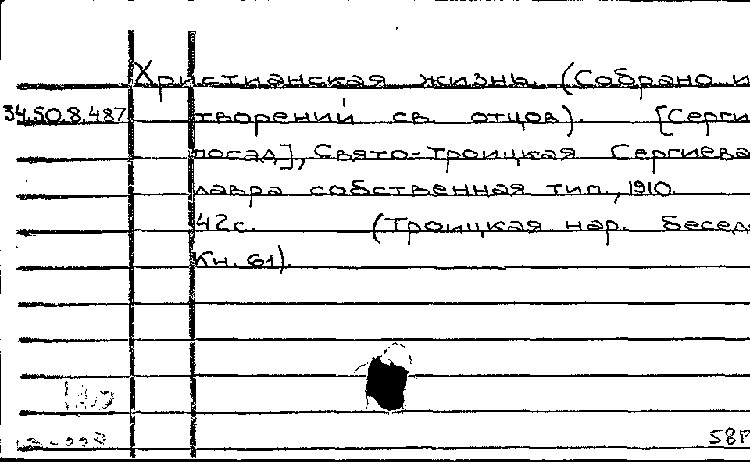 Христианская жизнь. (Собрано и
34.50.8.487 творений св. отцов). [Серги
посад], Свято-Троицкая Сергиева
лавра собственная тип., 1910.
42 с. (Троицкая нар. бесед
Кн. 61).
58Р